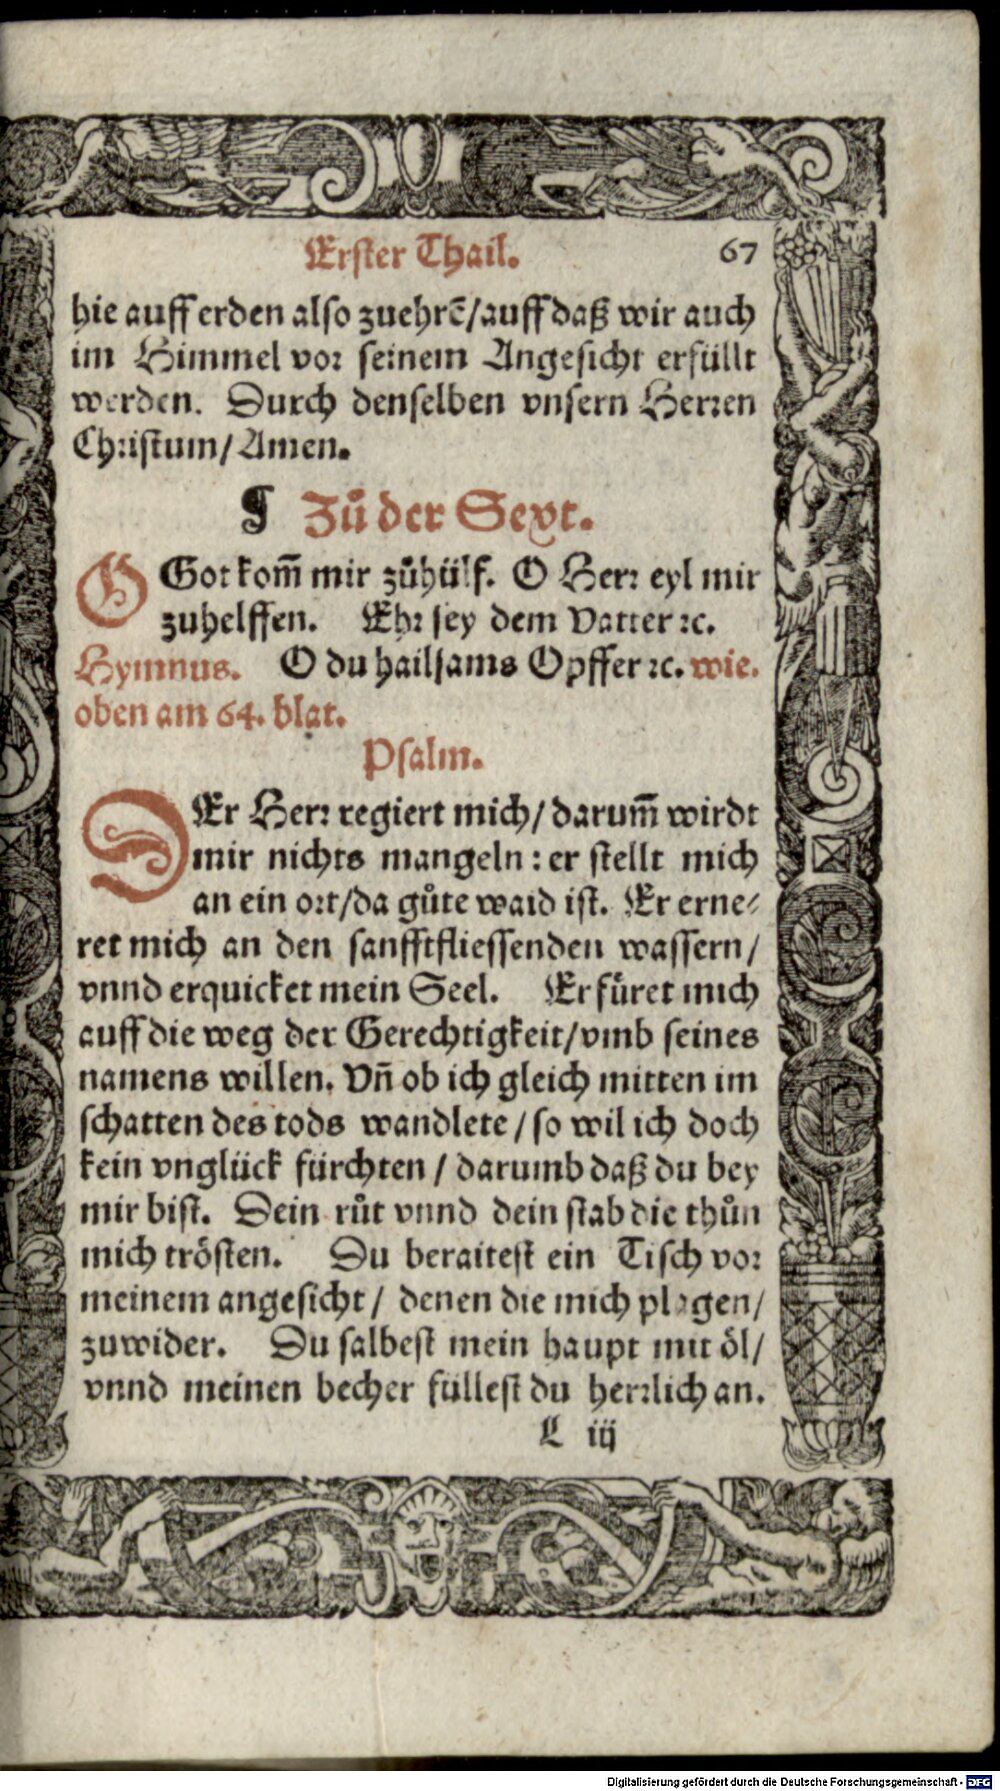 Erster Thail. 67
hie auff erden also zuehrẽ/auff daß wir auch
im Himmel vor seinem Angesicht erfüllt
werden. Durch denselben vnsern Herren
Christum/Amen.
¶ Zů der Sext.
O Got kom̃ mir zůhülf. O Herr eyl mir
zuhelffen. Ehr sey dem Vatter ꝛc.
Hymnus. O du hailsams Opffer ꝛc. wie.
oben am 64. blat.
Psalm.
DEr Herr regiert mich/darum̃ wirdt
mir nichts mangeln: er stellt mich
an ein ort/da gůte waid ist. Er erne⸗
ret mich an den sanfftfliessenden wassern/
vnnd erquicket mein Seel. Er füret mich
auff die weg der Gerechtigkeit/vmb seines
namens willen. Vñ ob ich gleich mitten im
schatten des tods wandlete/so wil ich doch
kein vnglück fürchten/darumb daß du bey
mir bist. Dein růt vnnd dein stab die thůn
mich trösten. Du beraitest ein Tisch vor
meinem angesicht/denen die mich plagen/
zuwider. Du salbest mein haupt mit öl/
vnnd meinen becher füllest du herrlich an.
L iij
Digitalisierung gefördert durch die Deutsche Forschungsgemeinschaft - DFG